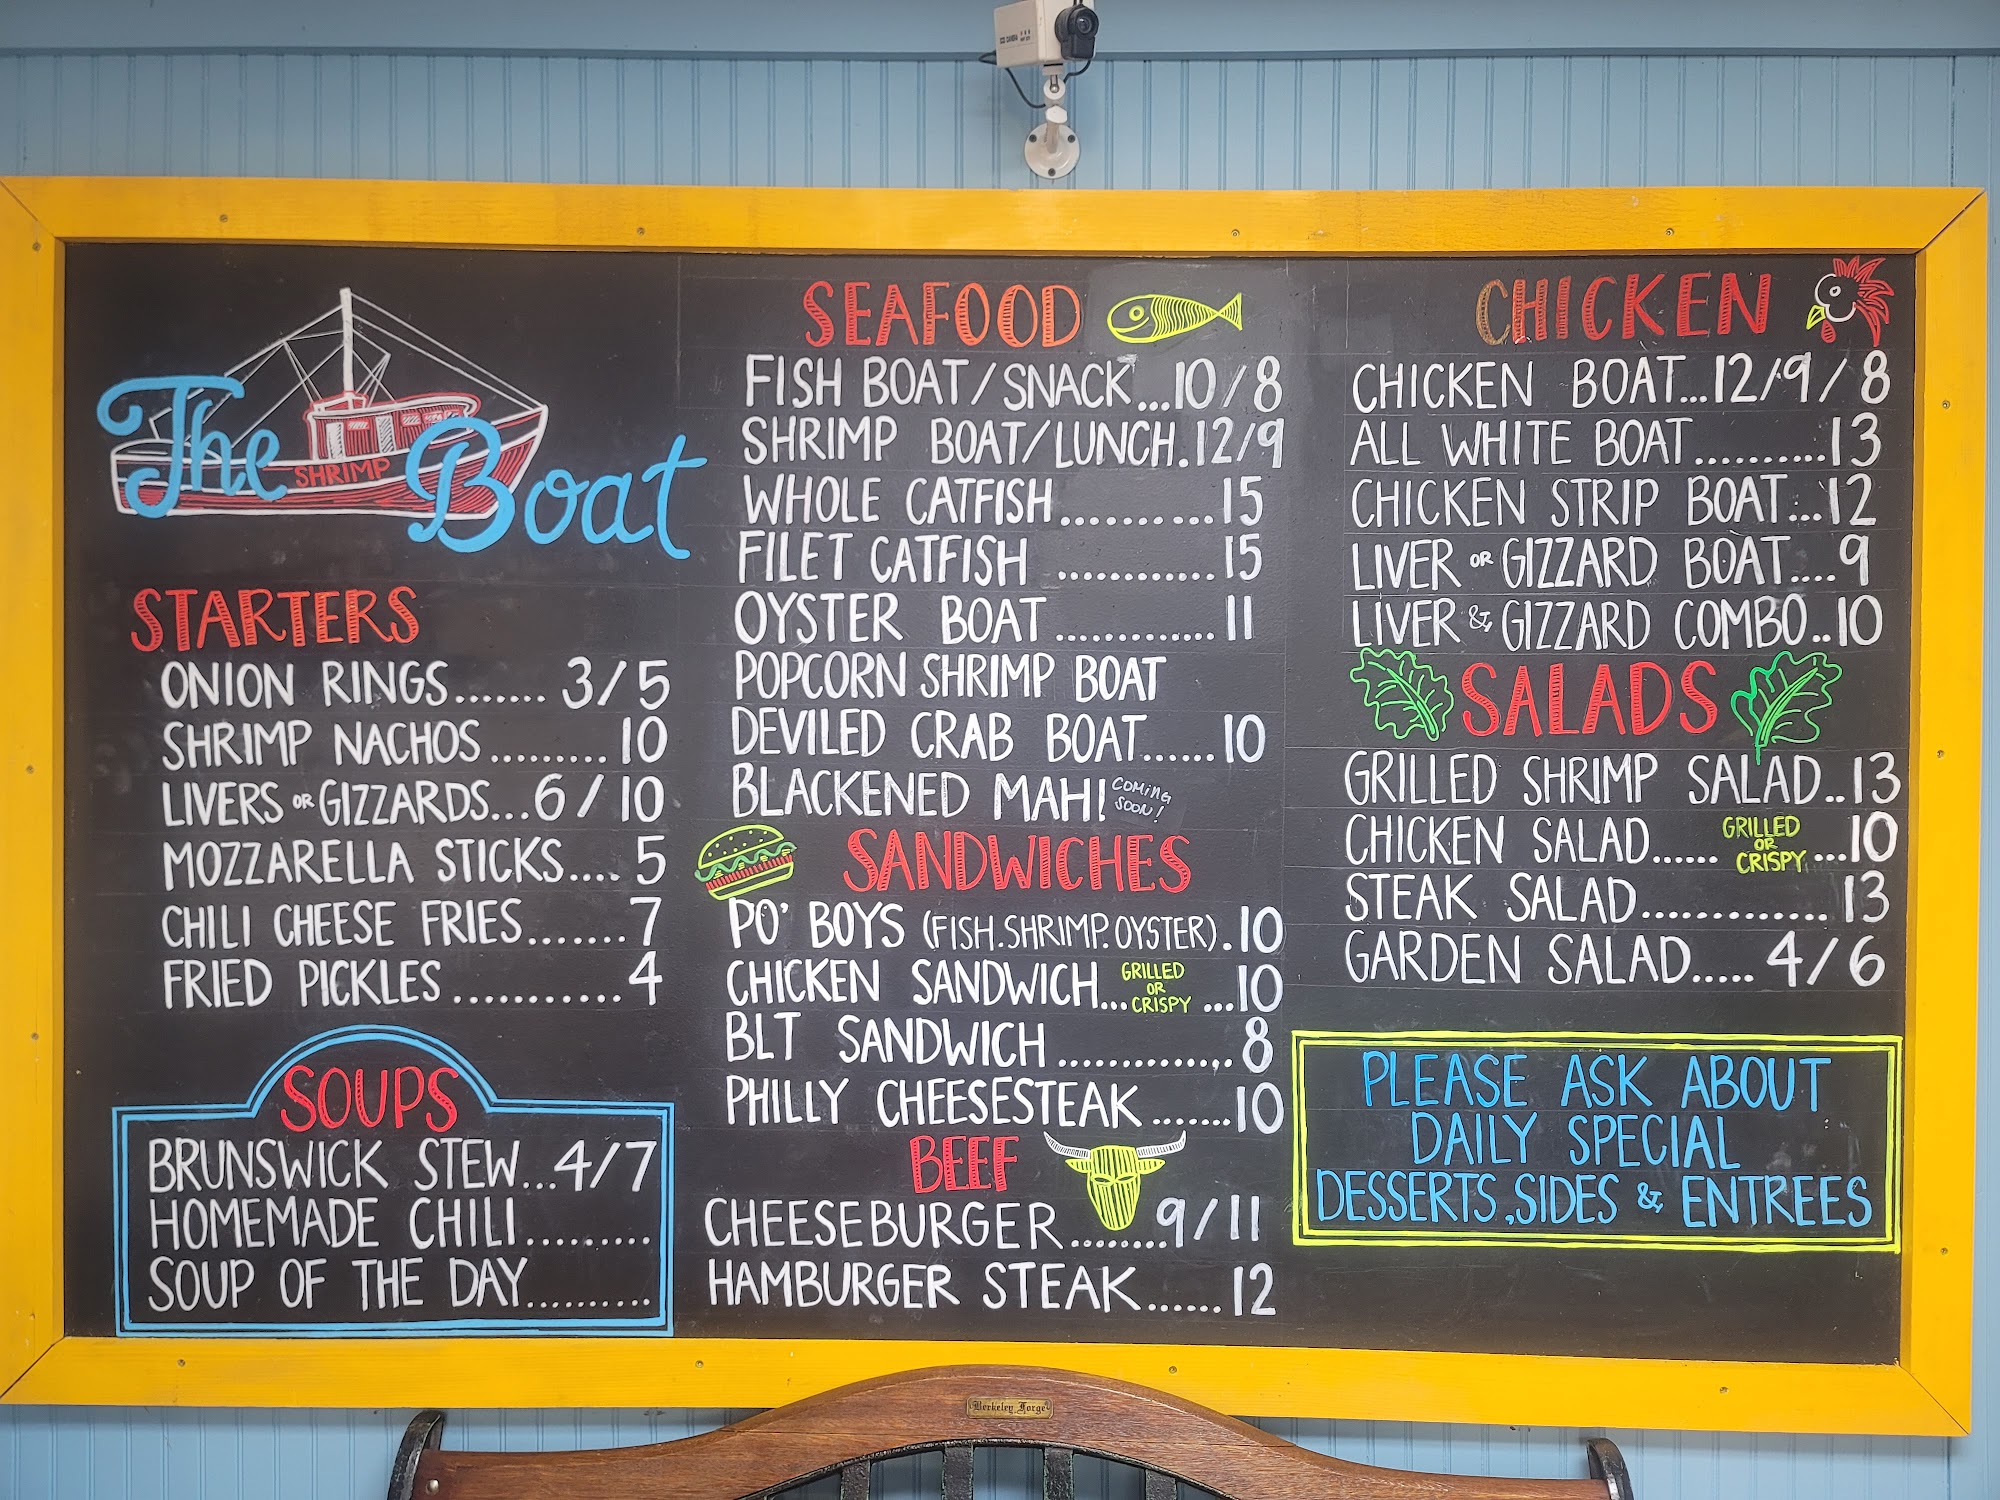 The Boat
SHRIMP
STARTERS
ONION RINGS....... 3/5
SHRIMP NACHOS......... 10
LIVERS OR GIZZARDS...6/10
MOZZARELLA STICKS.... 5
CHILI CHEESE FRIES.......7
FRIED PICKLES...........4
SOUPS
BRUNSWICK STEW...4/7
HOMEMADE CHILI.........
SOUP OF THE DAY..........
SEAFOOD
FISH BOAT/SNACK...10/8
SHRIMP BOAT/LUNCH.12/9
WHOLE CATFISH..........15
FILET CATFISH ............15
OYSTER BOAT.............11
POPCORN SHRIMP BOAT
DEVILED CRAB BOAT......10
BLACKENED MAHI COMING SOON!
SANDWICHES
PO' BOYS (FISH.SHRIMP.OYSTER).10
CHICKEN SANDWICH...GRILLED OR CRISPY...10
BLT SANDWICH.............8
PHILLY CHEESESTEAK.......10
BEEF
CHEESEBURGER........9/11
HAMBURGER STEAK......12
CHICKEN
CHICKEN BOAT...12/9/8
ALL WHITE BOAT..........13
CHICKEN STRIP BOAT...12
LIVER OR GIZZARD BOAT....9
LIVER & GIZZARD COMBO..10
SALADS
GRILLED SHRIMP SALAD..13
CHICKEN SALAD...... GRILLED OR CRISPY...10
STEAK SALAD............. 13
GARDEN SALAD..... 4/6
PLEASE ASK ABOUT
DAILY SPECIAL
DESSERTS,SIDES & ENTREES
Berkeley Forge